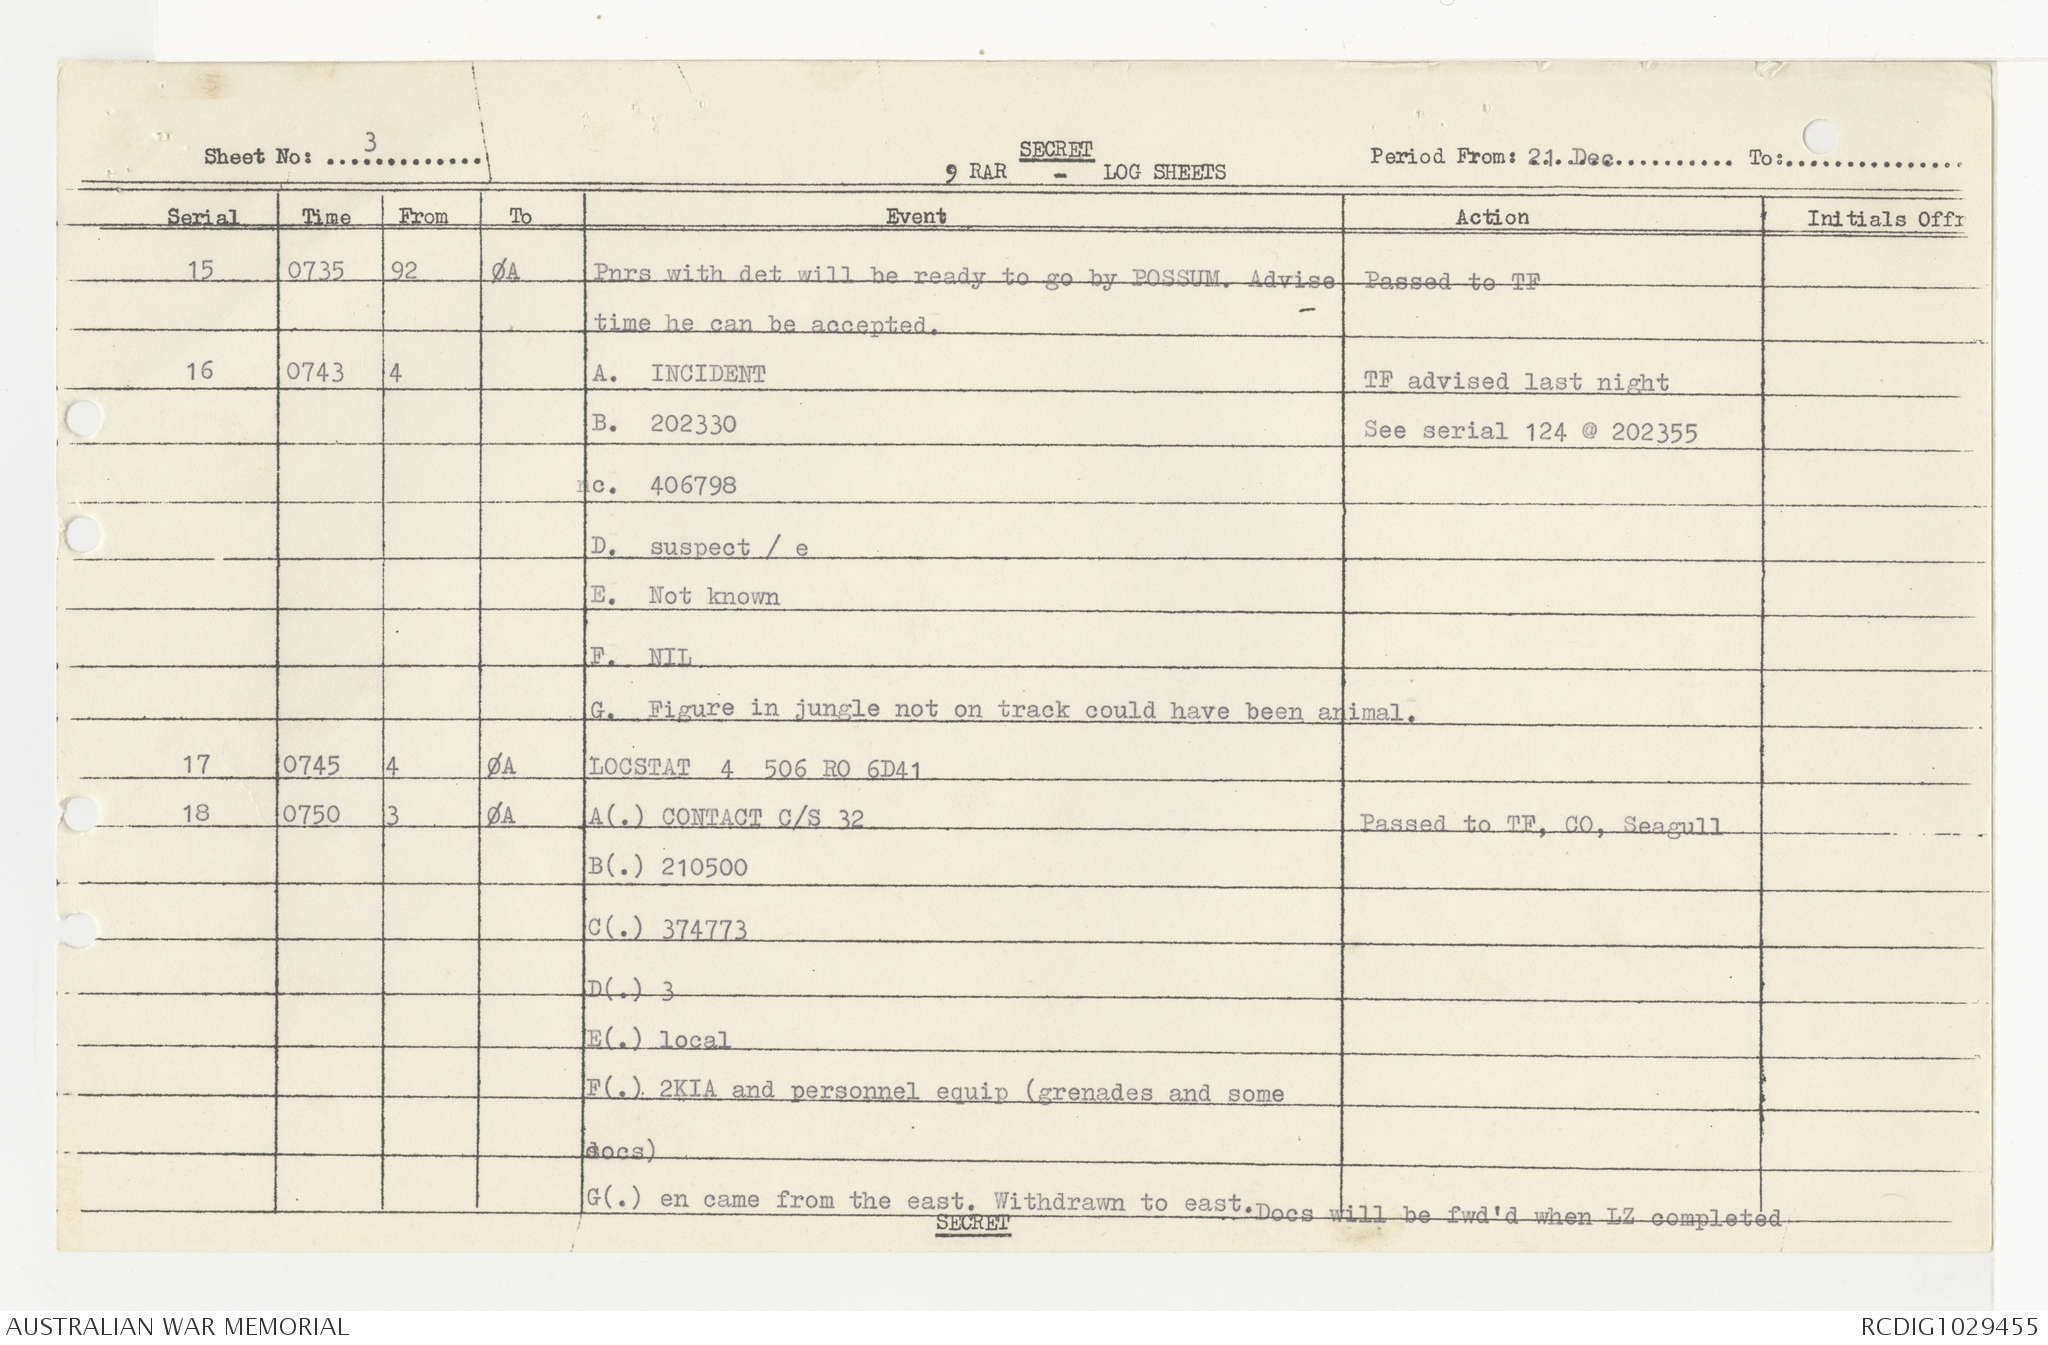 Sheet No: 3
SECRET
9 RAR - LOG SHEETS
Period From: 21 Dec To:
Serial Time From To Event Action Initials Offr
15 0735 92 ØA Pnrs with det will be ready to go by POSSUM. Advise Passed to TF
time he can be accepted.
16 0743 4 A. INCIDENT TF advised last night
B. 202330 See serial 124 @ 202355
c. 406798
D. suspect / e
E. Not known
F. NIL
G. Figure in jungle not on track could have been animal.
17 0745 4 ØA LOCSTAT 4 506 RO 6D41
18 0750 3 ØA A(.) CONTACT C/S 32 Passed to TF, CO, Seagull
B(.) 210500
C(.) 374773
D(.) 3
E(.) local
F(.) 2KIA and personnel equip (grenades and some
docs)
G(.) en came from the east. Withdrawn to east. Docs will be fwd'd when LZ completed
SECRET
AUSTRALIAN WAR MEMORIAL RCDIG1029455